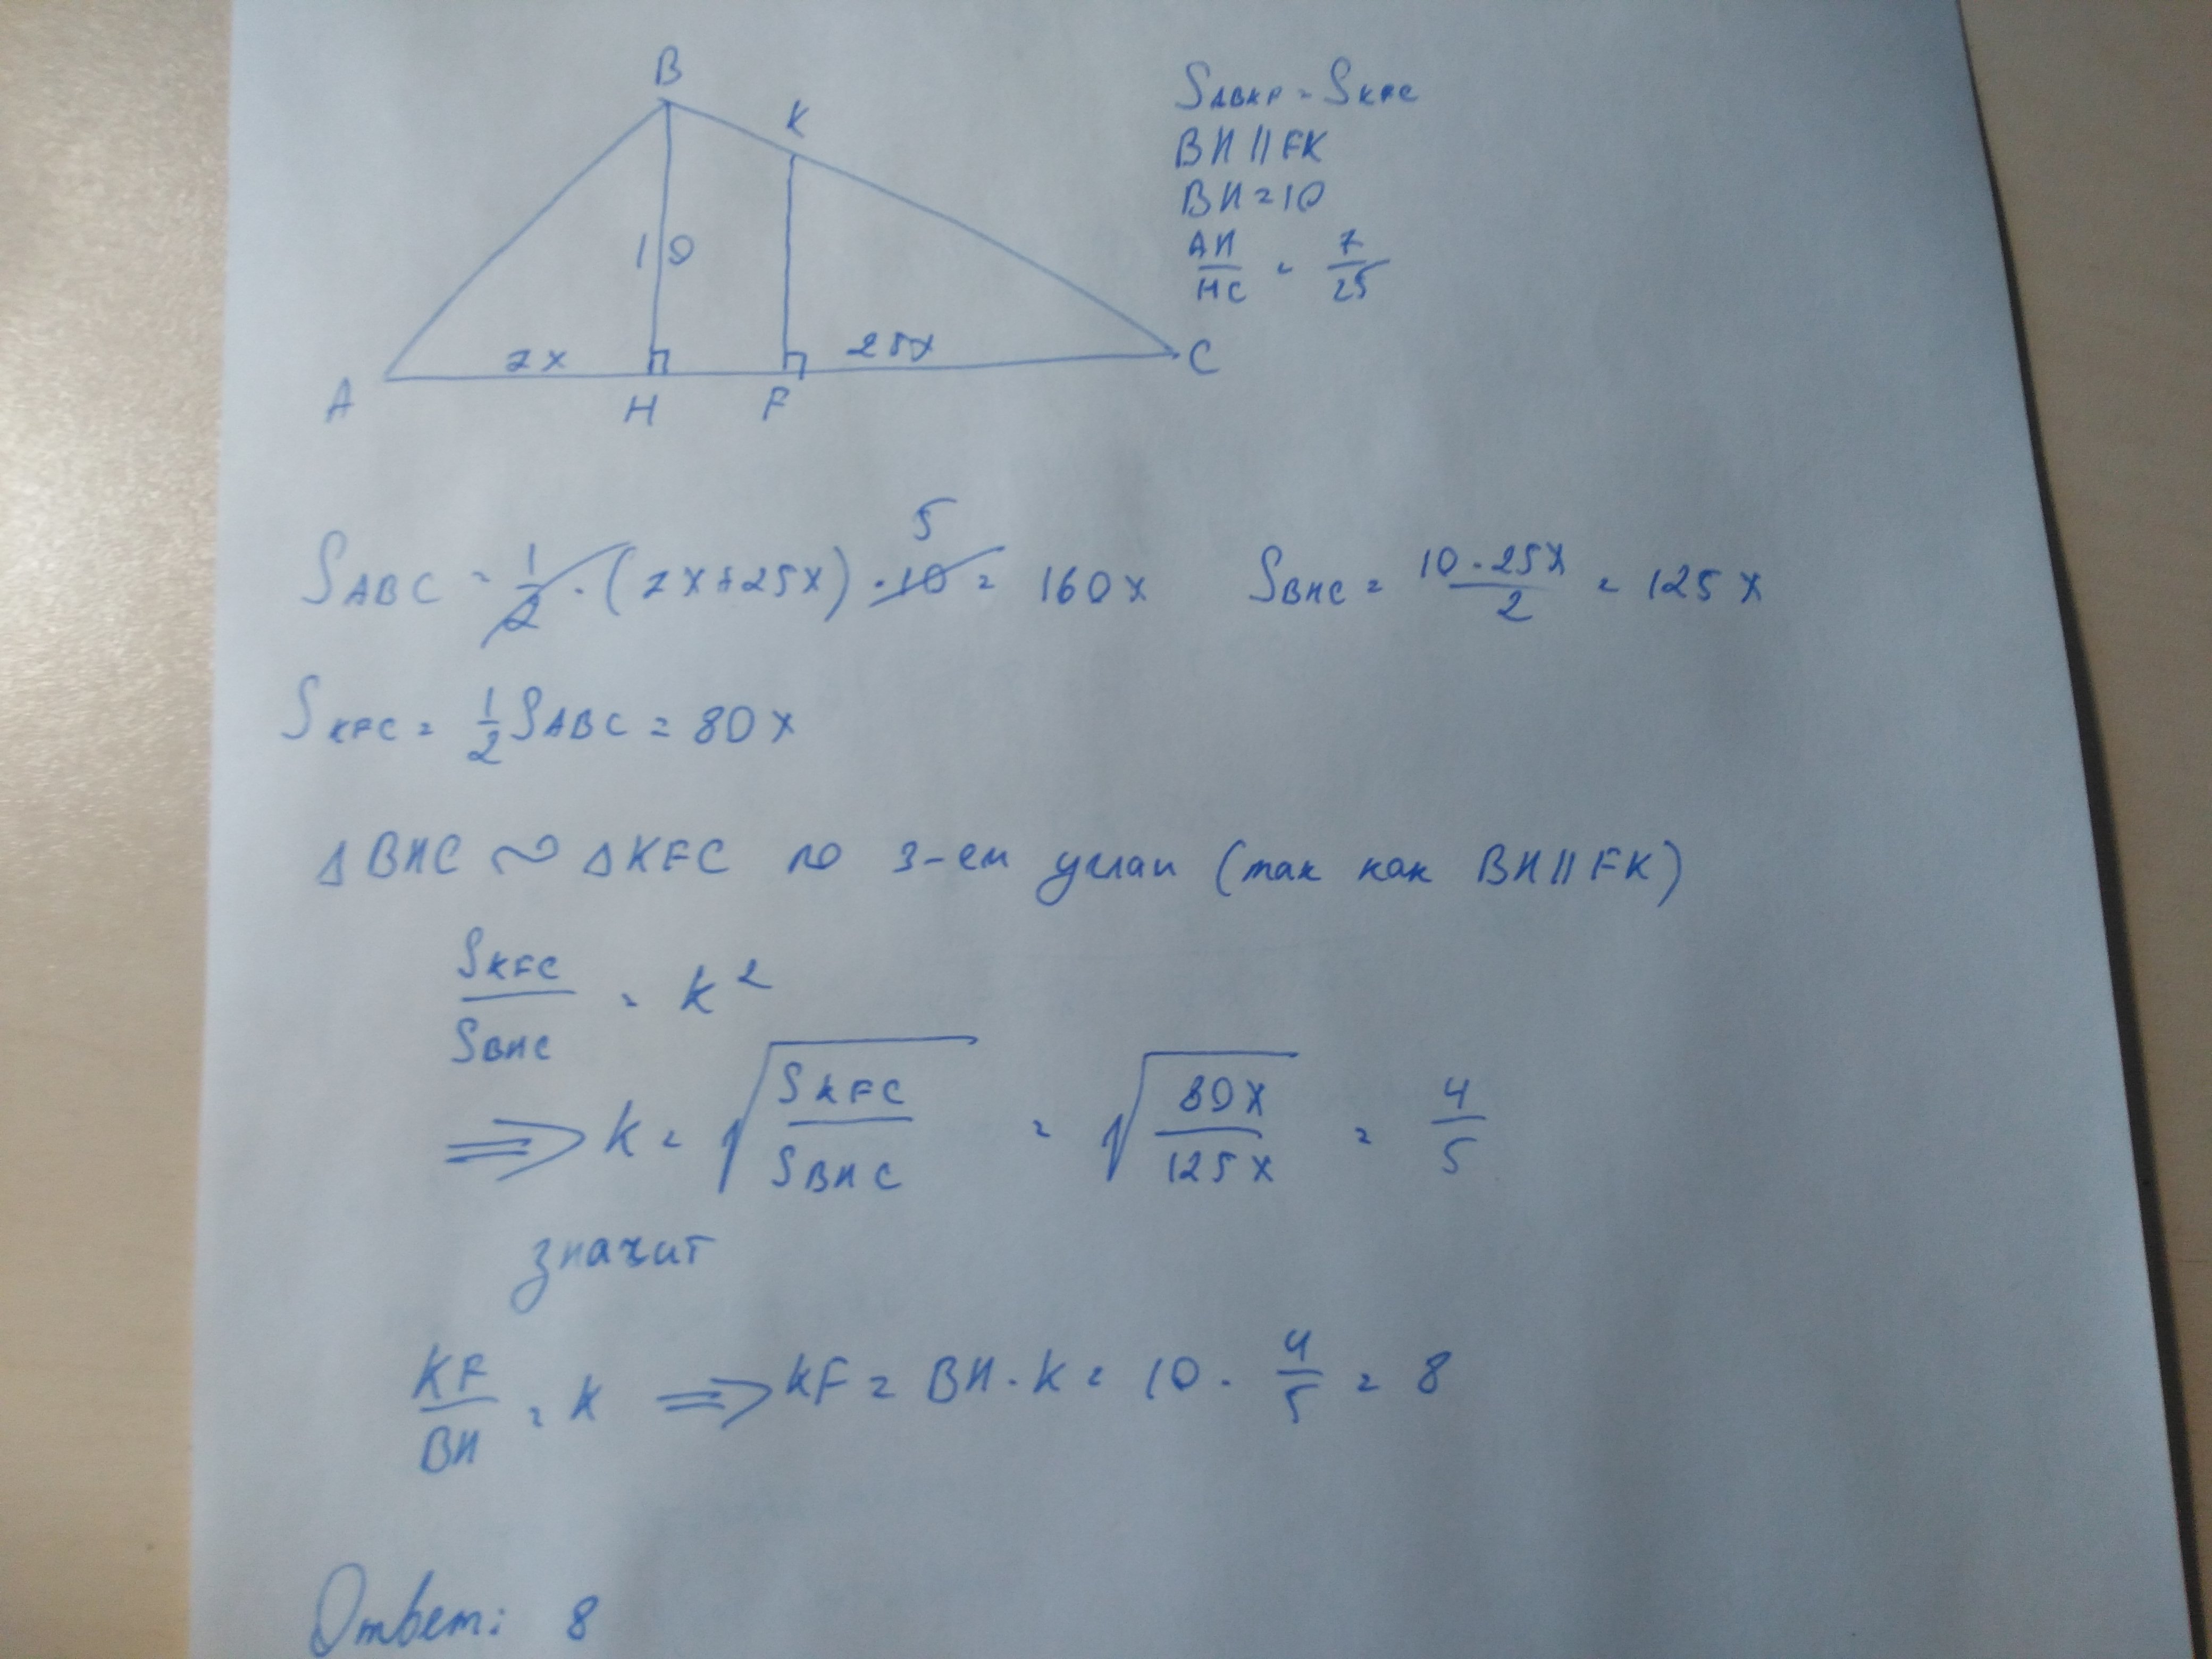 B
K
10
7x
25x
A
H
F
C
S ABKF = S KFC
BH || FK
BH = 10
AH/HC = 7/25
S ABC = 1/2 · (7x+25x) · 10 = 160x
5
S BHC = 10·25x/2 = 125x
S KFC = 1/2 S ABC = 80x
Δ BHC ~ Δ KFC по 3-ем углам (так как BH || FK)
S KFC / S BHC = k²
⟹ k = √(S KFC / S BHC) = √(80x / 125x) = 4/5
значит
KF/BH = k ⟹ KF = BH · k = 10 · 4/5 = 8
Ответ: 8